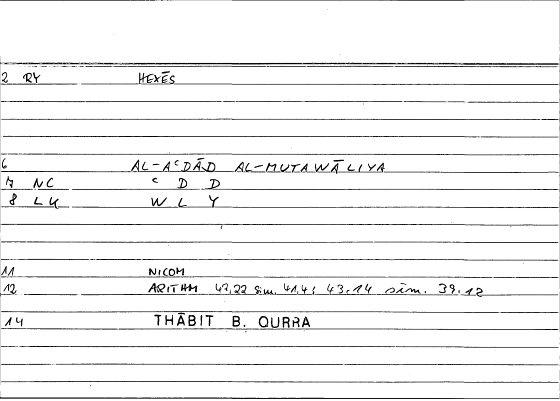 2 RY HEXÊS
6 AL-AᶜDĀD AL-MUTAWĀLIYA
7 NC ᶜ D D
8 LK W L Y
11 NICOM
12 ARITHM 42.22 sim. 41.4; 43.14 sim. 39.12
14 THĀBIT B. QURRA